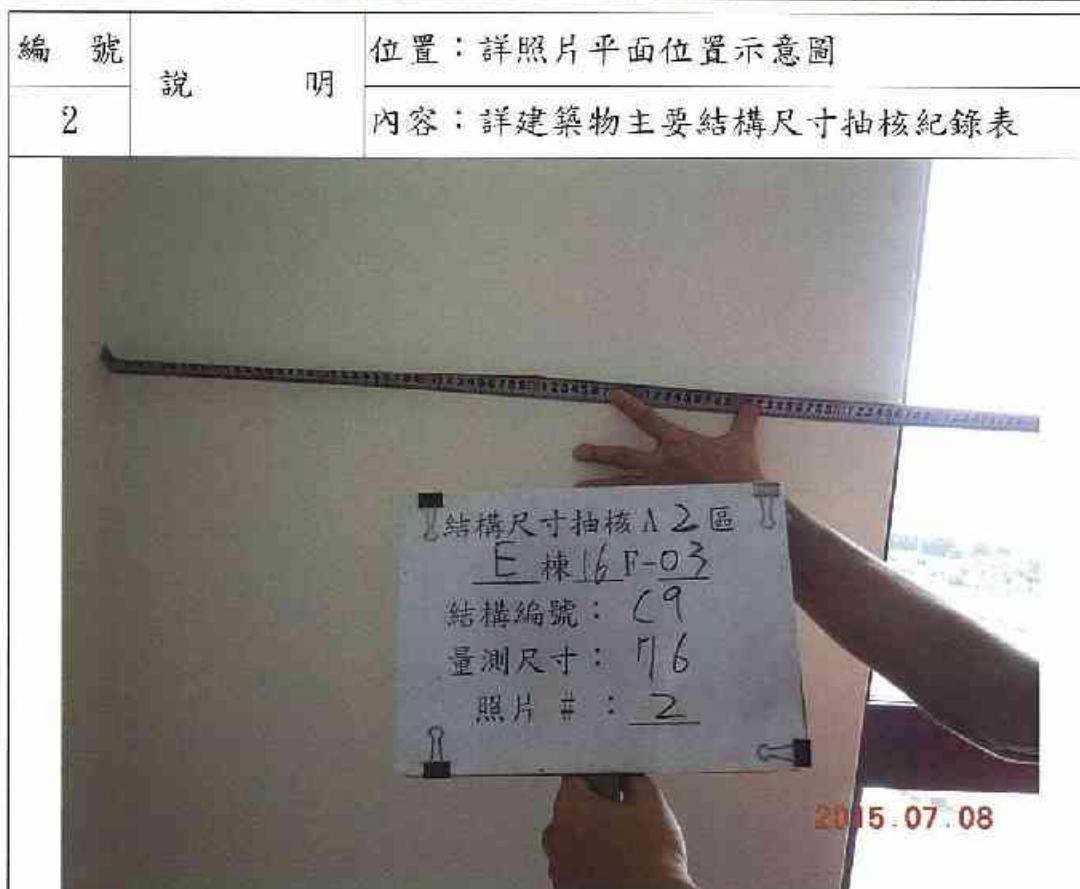 編 號
說 明
位置：詳照片平面位置示意圖
2
內容：詳建築物主要結構尺寸抽核紀錄表
結構尺寸抽核A2區
E 棟 16 F-03
結構編號： C9
量測尺寸： 76
照片 # ： 2
2015.07.08